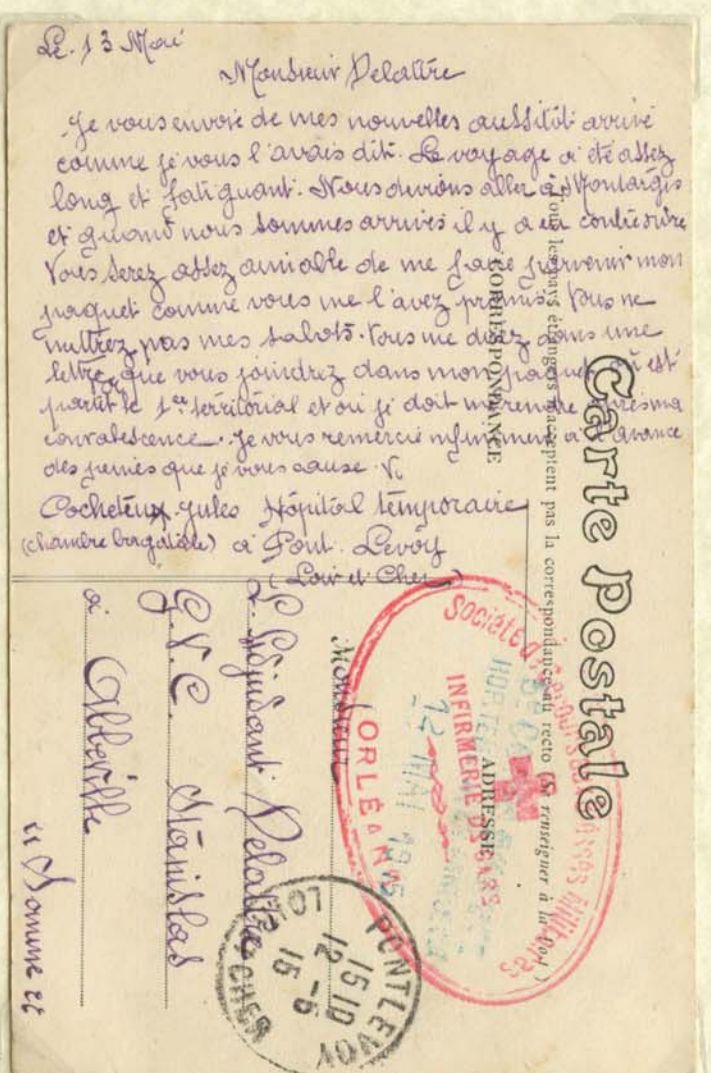 Le. 13 Mai
Monsieur Delattre
Je vous envoie de mes nouvelles aussitôt arrivé
comme je vous l'avais dit. Le voyage a été assez
long et fatiguant. Nous devions aller à Montargis
et quand nous sommes arrivés il y a eu contre ordre
Vous serez assez aimable de me faire parvenir mon
paquet comme vous me l'avez promis, Vous ne
mettrez pas mes sabots. Vous me direz dans une
lettre que vous joindrez dans mon paquet où est
partit le 1er territorial et où je doit me rendre après ma
convalescence. Je vous remercie infiniment à l'avance
des peines que je vous cause.
Cocheteux Jules Hôpital temporaire
(chambre) à Pont. Levoy
(Loir et Cher)
Carte Postale
Tous les pays étrangers n'acceptent pas la correspondance au recto (Se renseigner à la Poste)
CORRESPONDANCE
ADRESSE
Monsieur
L'Adjudant Delattre
G.V.C. Stanislas
à Abbeville
Somme
Société de Secours aux Blessés Militaires
INFIRMERIE DE GARE
ORLÉANS
12 MAI 1915
PONTLEVOY
15 10
12 -5
15
LOIR ET CHER